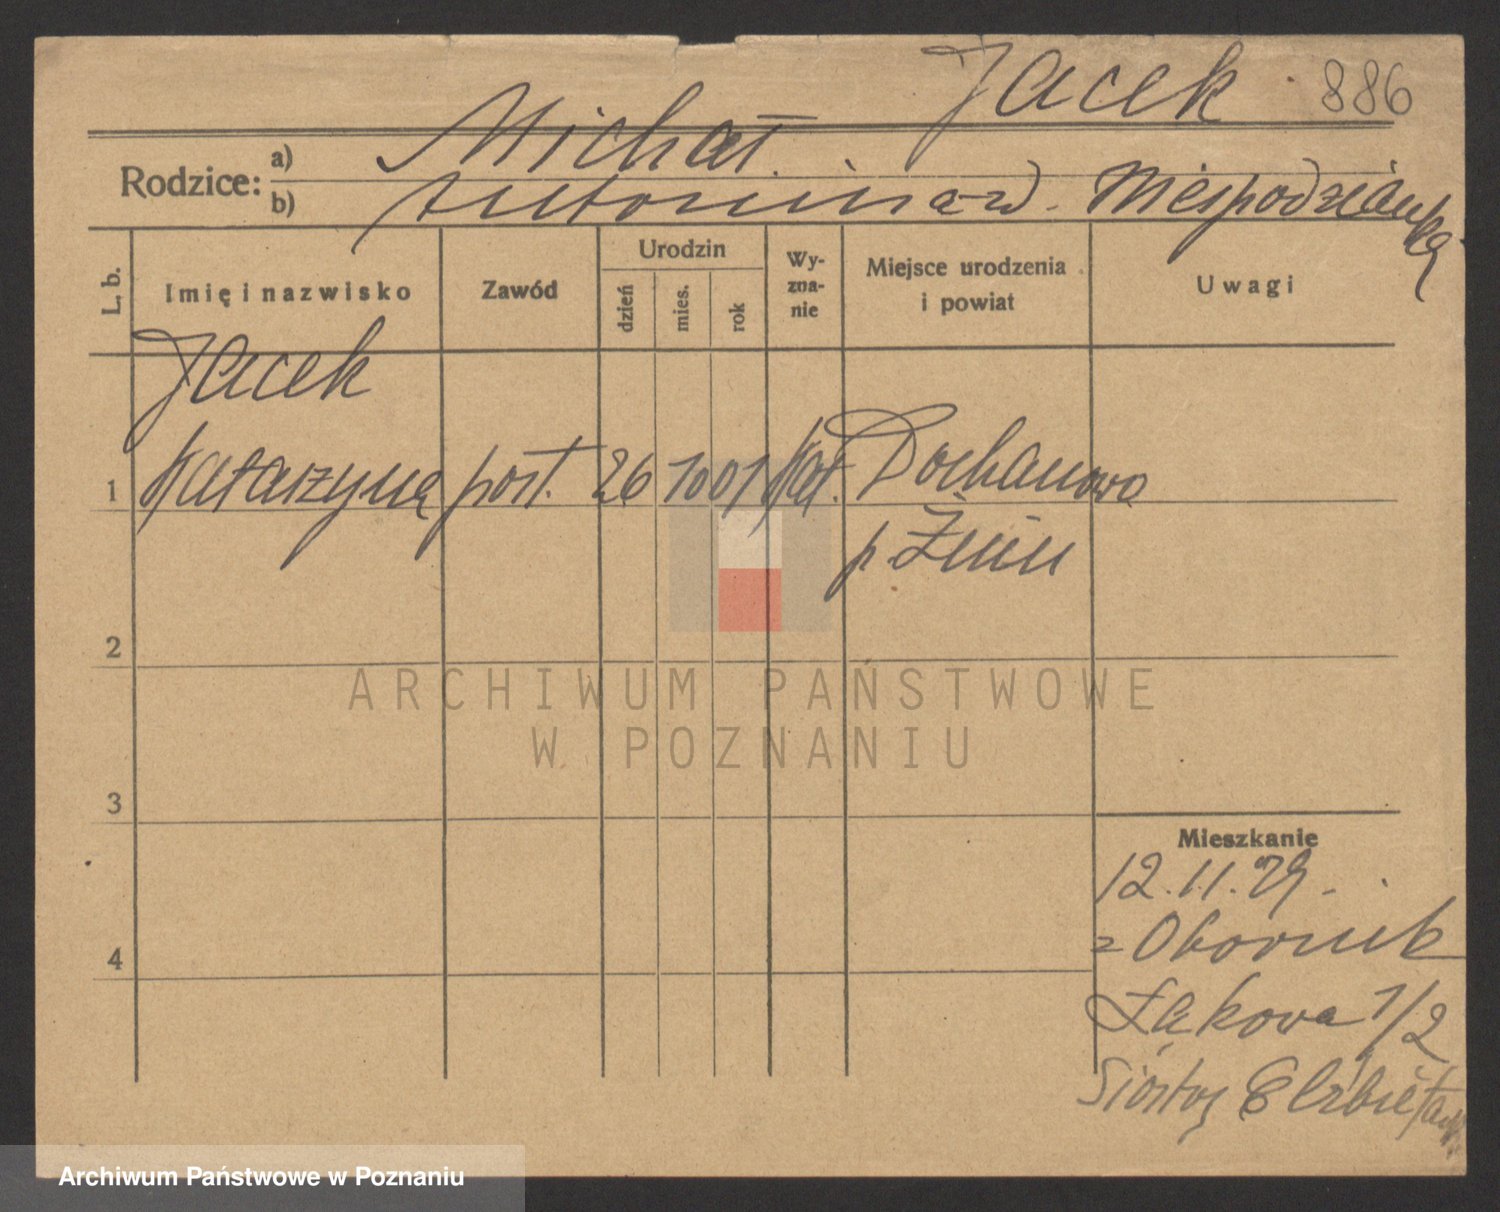 Jacek 886
Rodzice: a) Michał
b) Antonina z d. Niespodzianka
L. b. Imię i nazwisko Zawód Urodzin dzień mies. rok Wyzna-nie Miejsce urodzenia i powiat Uwagi
Jacek
1 Katarzyna post. 26 10 01 kat. Dochanowo
p. Żnin
2
ARCHIWUM PAŃSTWOWE
W POZNANIU
3
Mieszkanie
12.11.29.
z Obornik
4
Łąkowa 1/2
Siostry
Archiwum Państwowe w Poznaniu